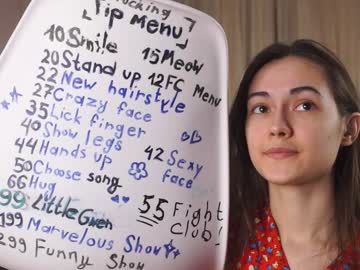 Tip Menu
10 Smile
15 Meow
20 Stand up 12 FC Menu
22 New hairstyle
27 Crazy face
35 Lick finger
40 Show legs
44 Hands up
42 Sexy face
50 Choose song
66 Hug
55 Fight Club!
99 Little Green
199 Marvelous Show
299 Funny Show